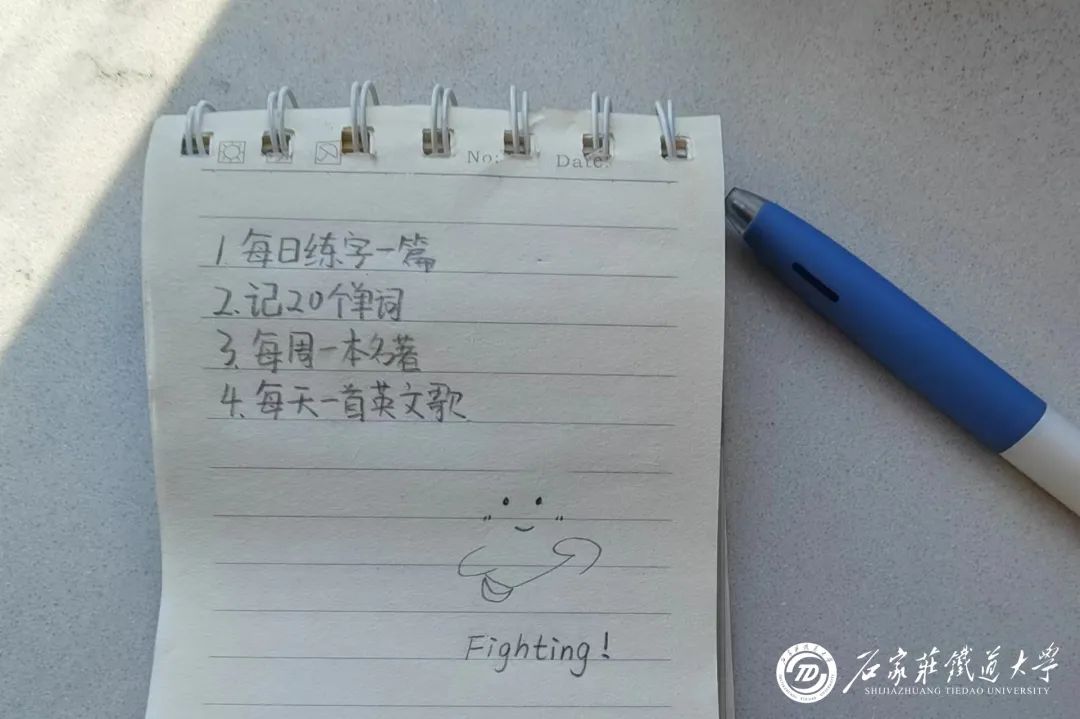 No:
Date:
1. 每日练字一篇
2. 记20个单词
3. 每周一本名著
4. 每天一首英文歌
Fighting!
石家莊鐵道大學
SHIJIAZHUANG TIEDAO UNIVERSITY